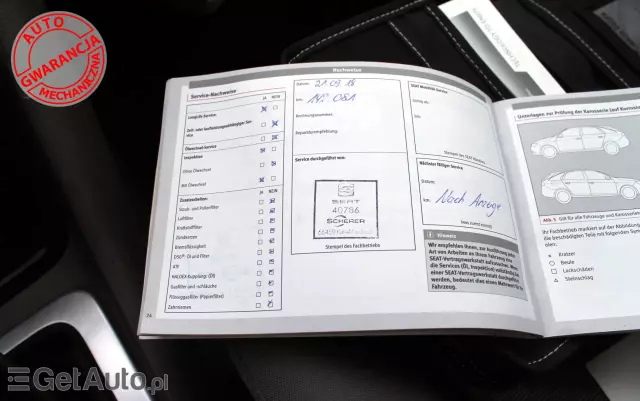 AUTO
GWARANCJA
MECHANICZNA
Nachweise
Service-Nachweise
JA NEIN
Longlife Service:
Zeit- oder laufleistungsabhängiger Service
Ölwechsel-Service
Inspektion
Ohne Ölwechsel
Mit Ölwechsel
Zusatzarbeiten: JA NEIN
Staub- und Pollenfilter
Luftfilter
Kraftstofffilter
Zündkerzen
Bremsflüssigkeit
DSG®: Öl und Filter
ATF
HALDEX-Kupplung: (Öl)
Zahnriemen
24
Datum: 21.09.18
km: 147 061
Rechnungsnummer:
Reparaturempfehlung:
Service durchgeführt von:
SEAT
40786
SCHERER
Stempel des Fachbetriebs
SEAT Mobilität-Service
Gültig ab:
km:
Stempel des SEAT Händlers
Nächster fälliger Service
Datum:
km: Nach Anzeige
Hinweis
Wir empfehlen Ihnen, zur Ausführung jeder
Art von Arbeiten an Ihrem Fahrzeug eine
SEAT-Vertragswerkstatt aufzusuchen. Indem
die Services (Öl, Inspektion) vollständig bei
einer SEAT-Vertragswerkstatt durchgeführt
werden, bedeutet dies einen Mehrwert für Ihr
Fahrzeug.
Unterlagen zur Prüfung der Karosserie (auf Korrosion
Abb. 5 Gilt für alle Fahrzeuge und Karosserie
Ihr Fachbetrieb markiert auf der Abbildung
die beschädigten Teile mit folgenden
× Kratzer
○ Beule
□ Lackschäden
△ Steinschlag
GetAuto.pl